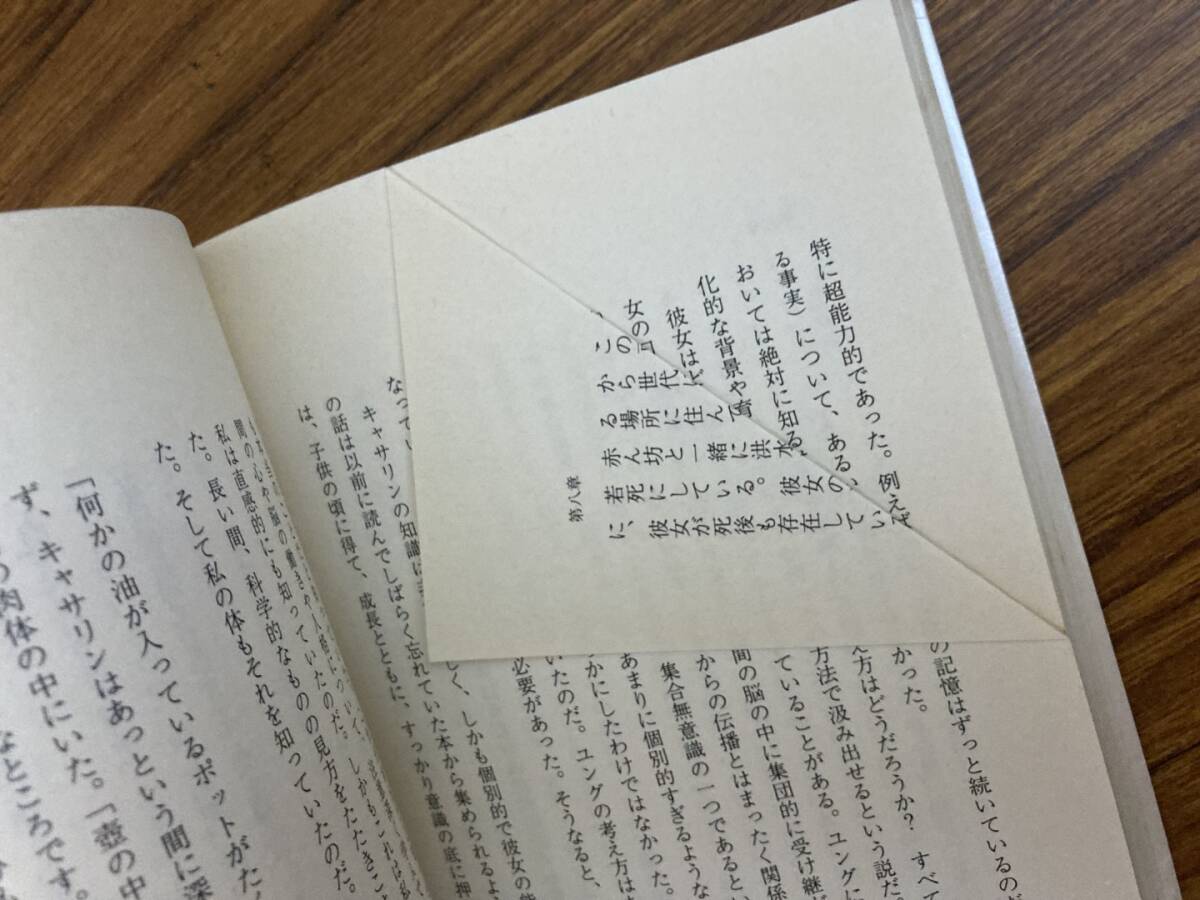 特に超能力的であった。例えば
る事実）について、ある
おいては絶対に知る
化的な背景や
彼女は
女の
この
から世代
る場所に住ん
赤ん坊と一緒に洪水
若死にしている。彼女の
に、彼女が死後も存在してい
第八章
の記憶はずっと続いているのだ
かった。
え方はどうだろうか？　すべて
方法で汲み出せるという説だ。
ていることがある。ユングに
間の脳の中に集団的に受け継が
からの伝播とはまったく関係
集合無意識の一つであるとい
あまりに個別的すぎるような
かにしたわけではなかった。
いたのだ。ユングの考え方は
必要があった。そうなると、
しく、しかも個別的で彼女の
なってい
キャサリンの知識は
の話は以前に読んでしばらく忘れていた本から集められるよ
は、子供の頃に得て、成長とともに、すっかり意識の底に押
間の心や脳の働きや人格について、しかもこれは私
私は直感的にも知っていたのだ。
た。長い間、科学的なものの見方をたたきこ
た。そして私の体もそれを知っていたのだ。
「何かの油が入っているポットがたく
ず、キャサリンはあっという間に深
肉体の中にいた。「壺の中
なところです。